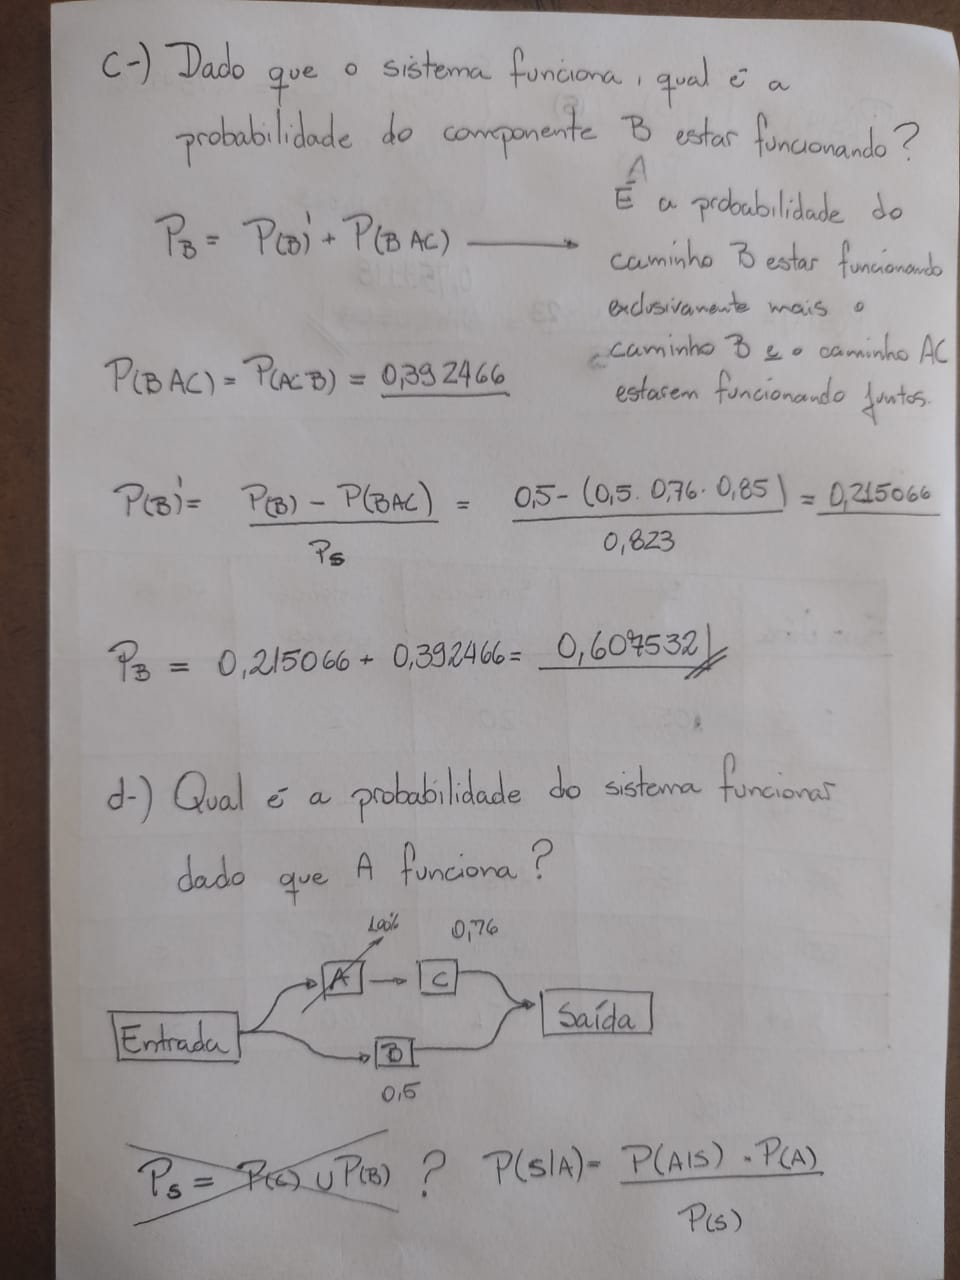 c-) Dado que o sistema funciona, qual é a
probabilidade do componente B estar funcionando?
A
P_B = P(B)' + P(B AC) ⟶ É a probabilidade do
caminho B estar funcionando
exclusivamente mais o
caminho B e o caminho AC
estarem funcionando juntos.
P(B AC) = P(AC B) = 0,392466
P(B)' = P(B) - P(BAC) / P_S = 0,5 - (0,5 . 0,76 . 0,85) / 0,823 = 0,215066
P_B = 0,215066 + 0,392466 = 0,607532
d-) Qual é a probabilidade do sistema funcionar
dado que A funciona?
100% 0,76
A → C
Entrada Saída
B
0,5
P_S = P(C) ∪ P(B) ? P(S|A) = P(A|S) . P(A) / P(S)